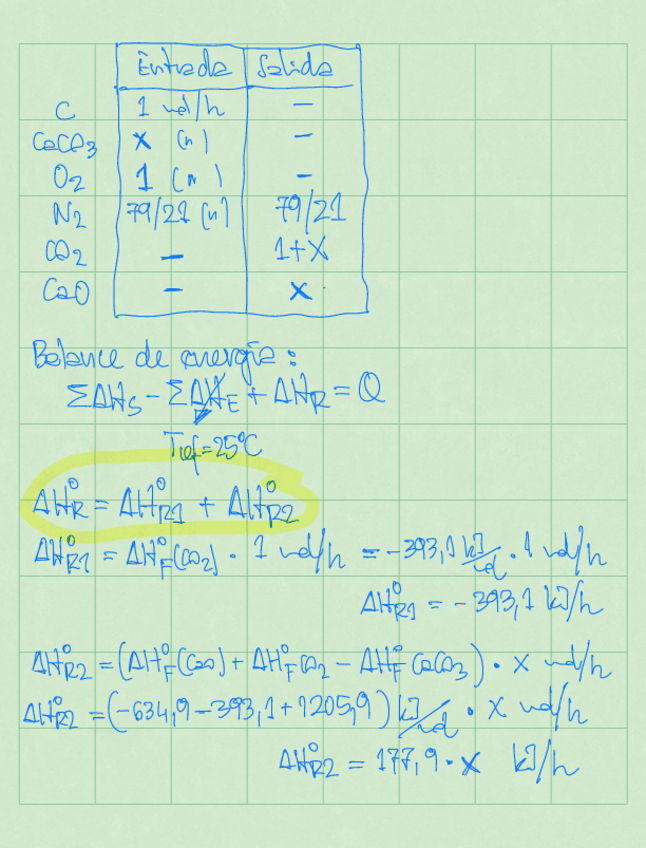 Entrada Salida
C 1 mol/h —
CaCO₃ x (n) —
O₂ 1 (n) —
N₂ 79/21 (n) 79/21
CO₂ — 1+x
CaO — x
Balance de energía:
ΣΔH_S - ΣΔH_E + ΔH_R = Q
Tref=25°C
ΔH°_R = ΔH°_R1 + ΔH°_R2
ΔH°_R1 = ΔH°_F(CO₂) · 1 mol/h = -393,1 kJ/mol · 1 mol/h
ΔH°_R1 = -393,1 kJ/h
ΔH°_R2 = (ΔH°_F(CaO) + ΔH°_F CO₂ - ΔH°_F CaCO₃) · x mol/h
ΔH°_R2 = (-634,9-393,1+1205,9) kJ/mol · x mol/h
ΔH°_R2 = 177,9 · x kJ/h